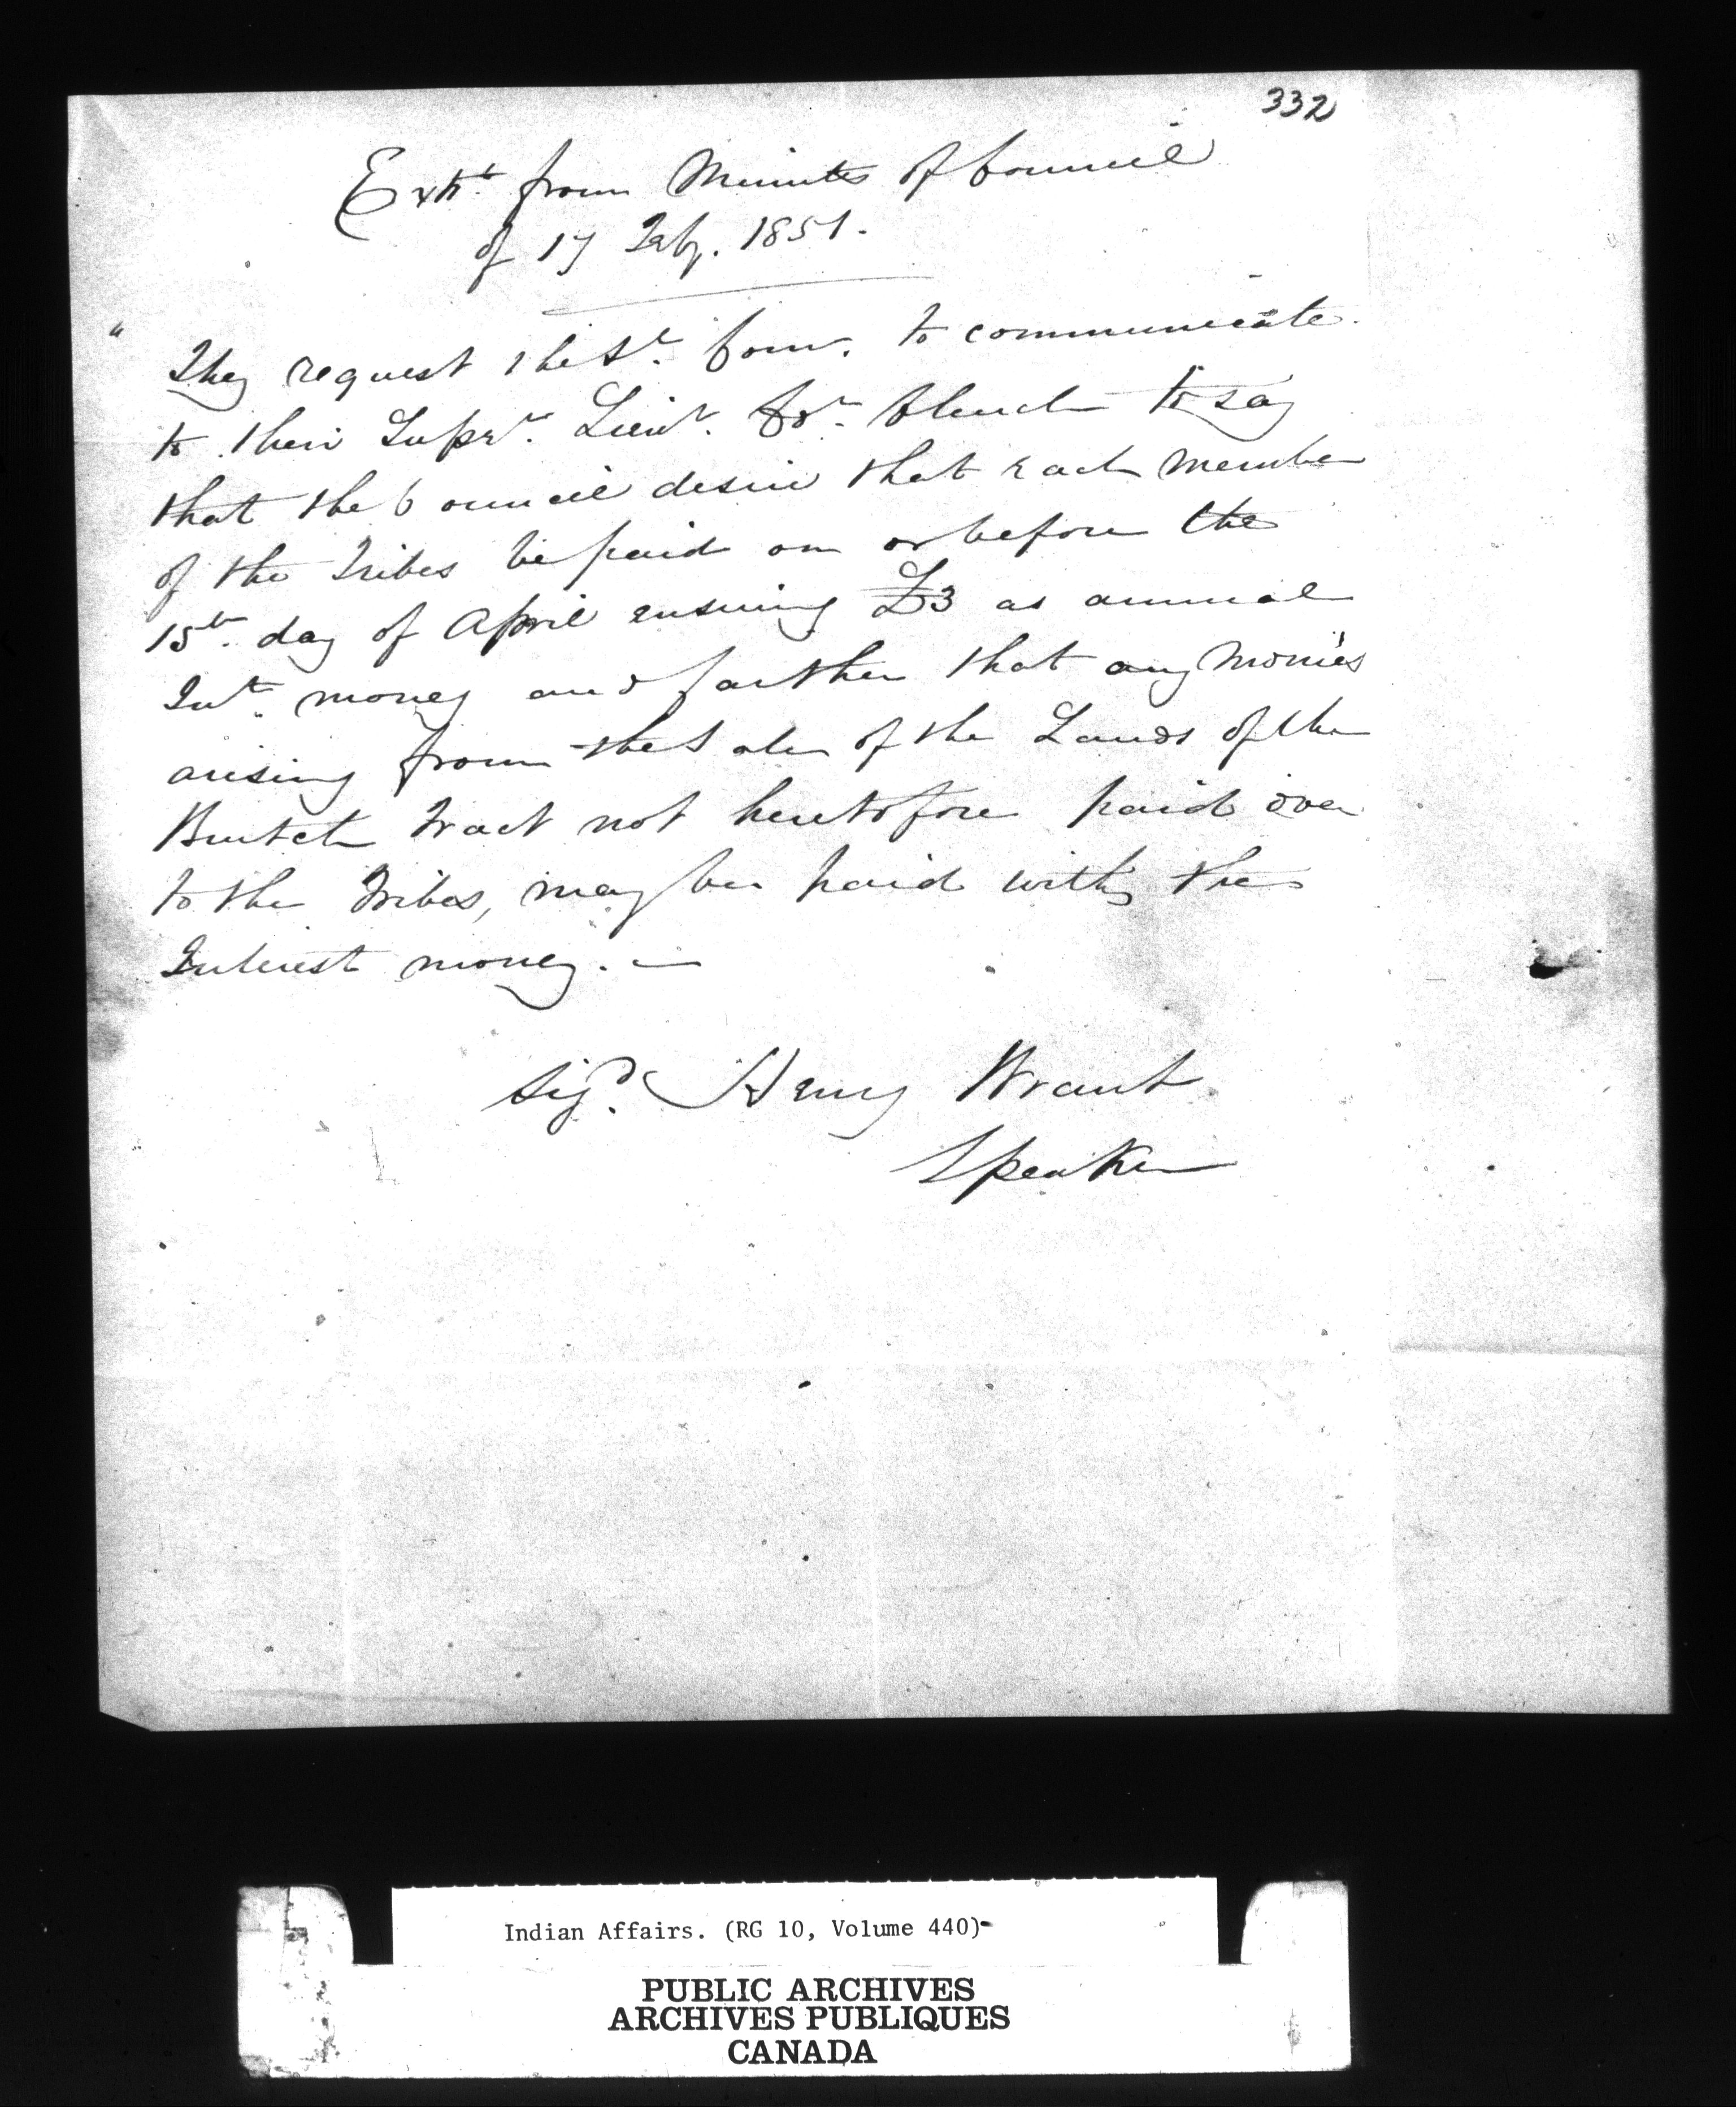 332
Extrt. from Minutes of Council
of 17 Feby. 1851.
" They request the St. Com. to communicate
to their Suprt. Lieut. Col. Clench to say
that the Council desire that each member
of the Tribes be paid on or before the
15th. day of April ensuing £3 as annual
Int. money and farther that any Monies
arising from the Sale of the Lands of the
Burtch Tract not heretofore paid over
to the Tribes, may be paid with the
Interest money. —
Sigd. Henry Brant
Speaker
Indian Affairs. (RG 10, Volume 440)
PUBLIC ARCHIVES
ARCHIVES PUBLIQUES
CANADA